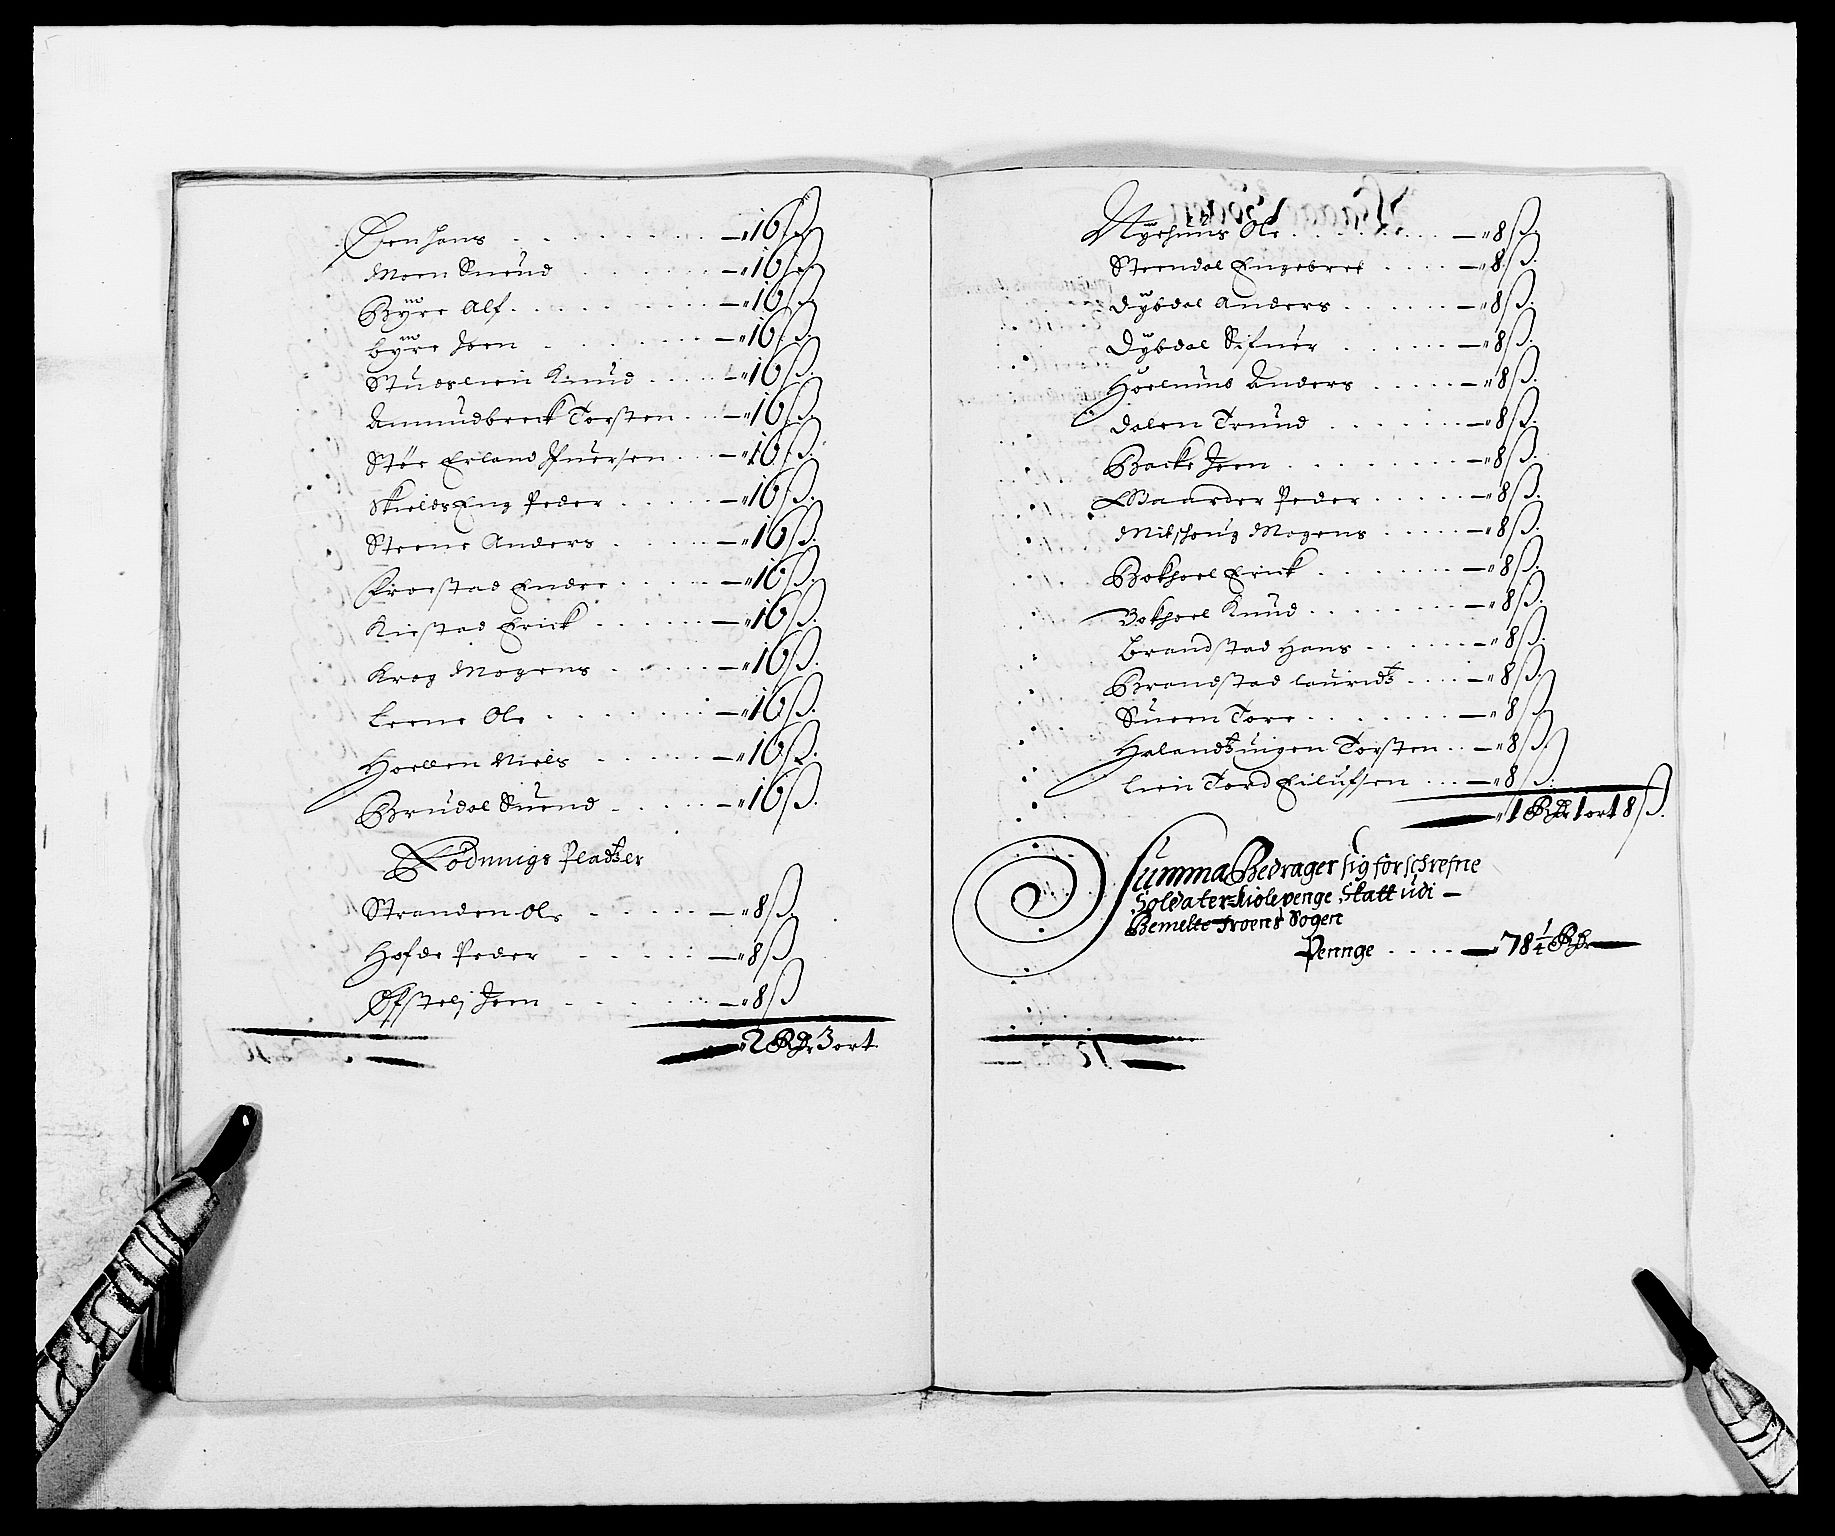 Øen Hans . . . . . . . — " 16 ß.
Moen Suend . . . . . . — " 16 ß.
Byre Alf . . . . . . — " 16 ß.
byre Joen . . . . . . — " 16 ß.
Studslien Knud . . . . — " 16 ß.
Amundbreck Torsten . . . — " 16 ß.
Støe Erland Jfuersen . . — " 16 ß.
SkieldsEng Peder . . . . — " 16 ß.
Steene Anders . . . . . — " 16 ß.
Froestad Endre . . . . — " 16 ß.
Kiestad Erick . . . . . — " 16 ß.
Krog Mogens . . . . . — " 16 ß.
Leene Ole . . . . . . — " 16 ß.
Hoellen Niels . . . . . — " 16 ß.
Brudal Suend . . . . — " 16 ß.
Ødnings Pladtzer
Stranden Ole . . . . . — " 8 ß.
Hofde Peder . . . . . — " 8 ß
Øfsteli Joen . . . . . — " 8 ß
2 Rdr 3 ort
Nyehuus Ole . . . . . . — " 8 ß.
Steendal Engebret . . . . — " 8 ß.
Dybdal Anders . . . . . — " 8 ß.
Dybdal Sifuer . . . . . — " 8 ß.
Hoelund Anders . . . . . — " 8 ß.
Dalen Trund . . . . . . — " 8 ß.
Backe Joen . . . . . . — " 8 ß.
Waarder Peder . . . . . — " 8 ß.
Mitshoug Mogens . . . . — " 8 ß.
Bokhoel Erick . . . . . — " 8 ß.
Bokhoel Knud . . . . . . — " 8 ß.
Brandstad Hans . . . . . — " 8 ß.
Brandstad Lauridtz . . . — " 8 ß.
Sueen Tore . . . . . . — " 8 ß.
Halandtzuigen Torsten . . — " 8 ß.
Lien Tord Eilufsen . . . — " 8 ß.
1 Rdr 1 ort 8 ß.
Summa Bedrager sig forschrefne
Soldater Kiolepenge Skatt udi —
Bemelte Froens Sogen
Pennge . . . . — " 78 1/4 Rdr